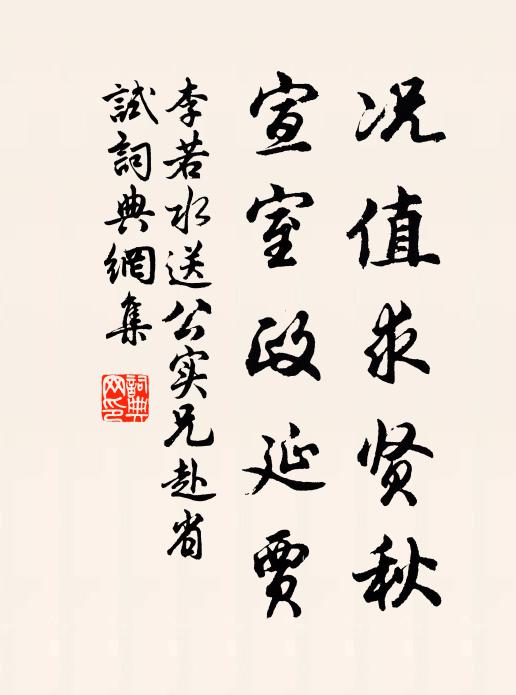 况值求贤秋
宣室政延贾
李若水送公实兄赴省
試詞典網集
詞典
网印